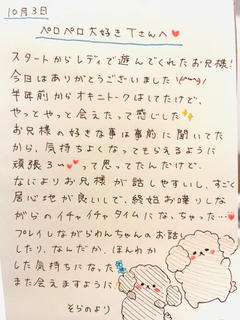 10月3日
ペロペロ大好きTさんへ
スタートからレディで遊んでくれたお兄様!
今日はありがとうございました
半年前からオキニトークはしてたけど、
やっとやっと会えたって感じした
お兄様の好きな事は事前に聞いてた
から、気持ちよくなってもらえるように
頑張ろ〜って思ってたんだけど、
なによりお兄様が話しやすいし、すごく
居心地が良いしで、終始お喋りしな
がらのイチャイチャタイムになっちゃった…
プレイしながらわんちゃんのお話
したり、なんだか、ほんわか
した気持ちになった
また会えますように
そらのより